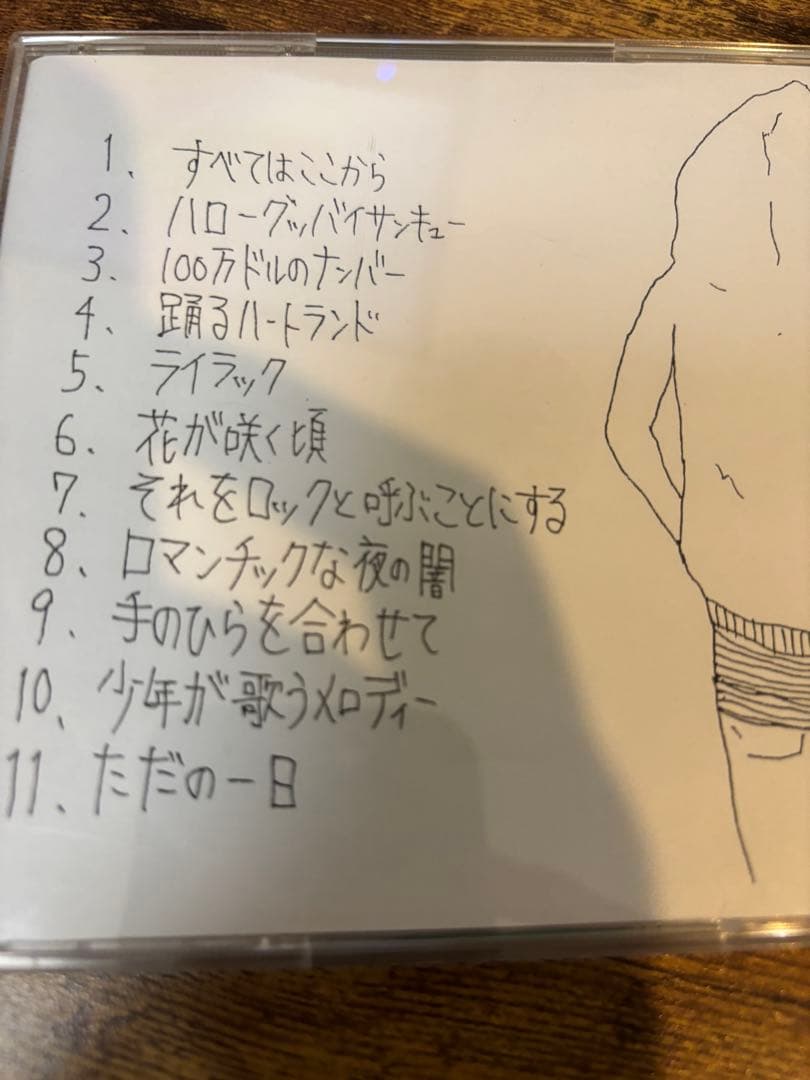 1、すべてはここから
2、ハローグッバイサンキュー
3、100万ドルのナンバー
4、踊るハートランド
5、ライラック
6、花が咲く頃
7、それをロックと呼ぶことにする
8、ロマンチックな夜の闇
9、手のひらを合わせて
10、少年が歌うメロディー
11、ただの一日